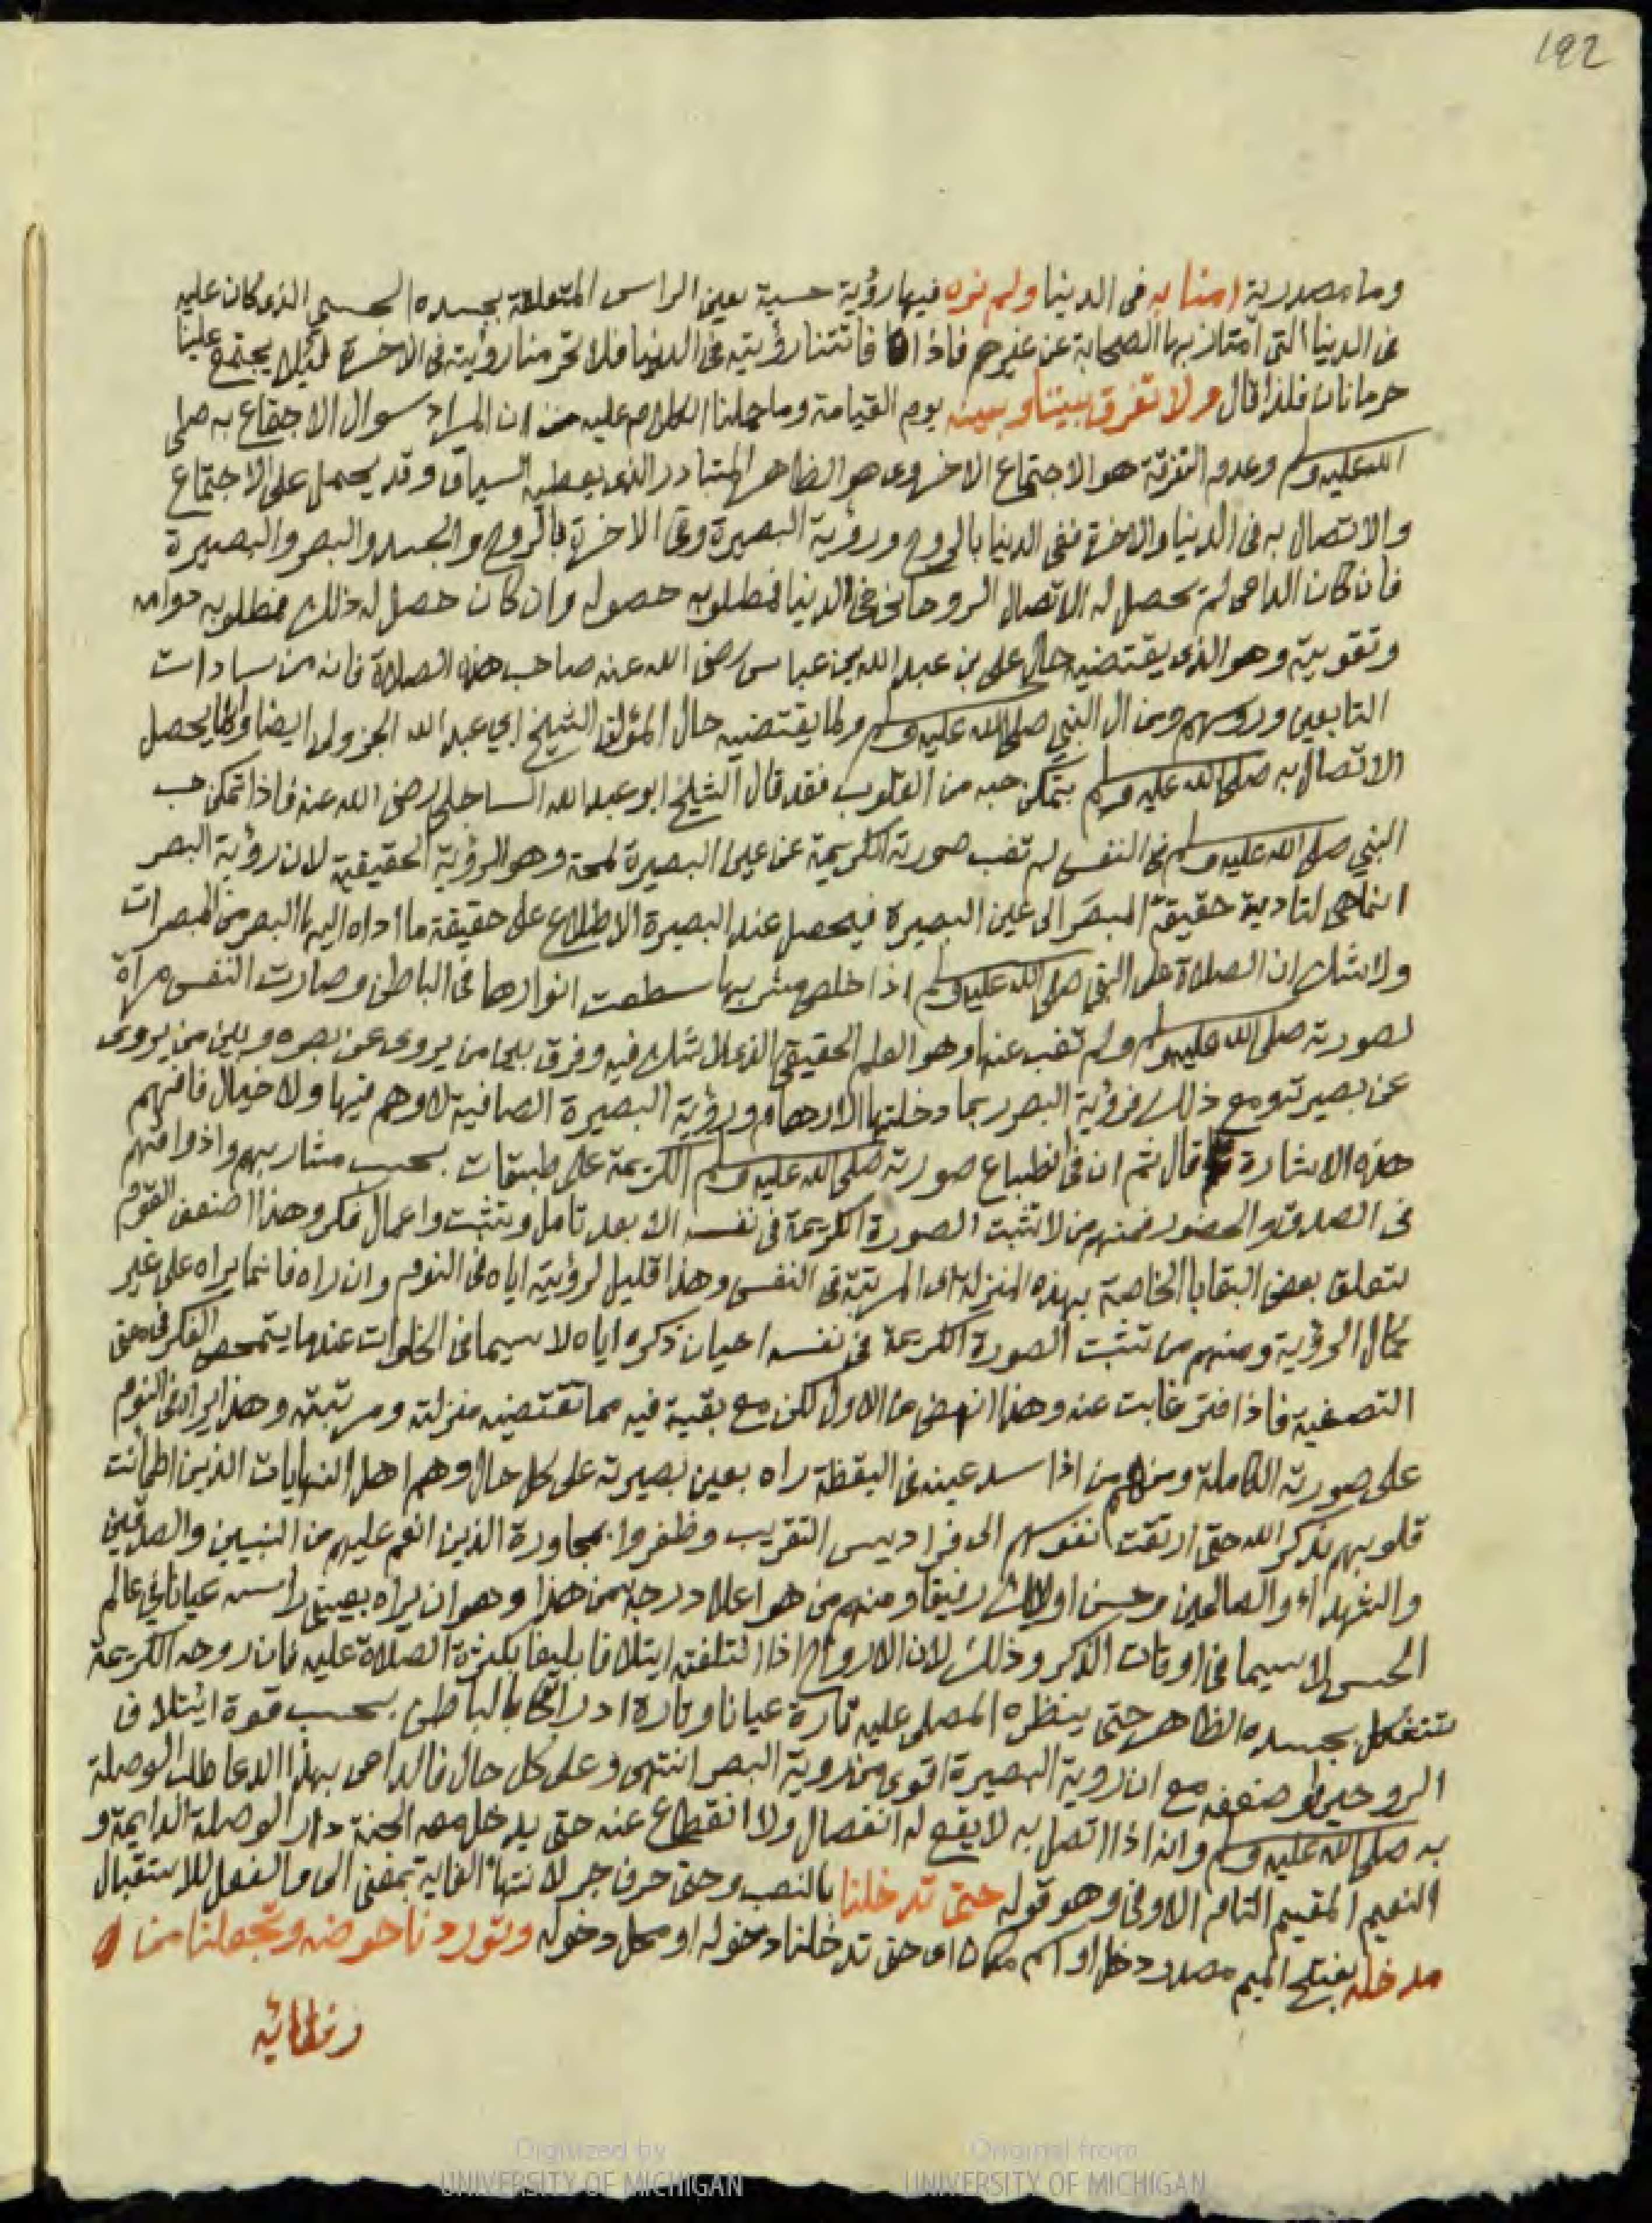 192
وما مصدرية امنا به فى الدينا ولم نره فيها رؤية حسية بعين الراس المتعلقة بجسده الحسى الذى كان عليه
فى الدينا التى امتاز بها الصحابة عن غيرهم فاذا فاتتنا رؤيته فى الدنيا فلا تحرمنا رؤيته فى الاخرة ليلا يجتمع علينا
حرمانان فلذا قال ولا تفرق بيننا وبينه يوم القيامة وما حملنا الكلام عليه من ان المراد سوال الاجتماع به صلى
الله عليه وسلم وعدم التفرقة هو الاجتماع الاخروى هو الظاهر المتبادر الذى يعطيه السياق وقد يحمل على الاجتماع
والاتصال به فى الدينا والاخرة ففى الدينا بالروح ورؤية البصيرة وفى الاخرة بالروح والجسد والبصر والبصيرة
فان كان الداعى لم يحصل له الاتصال الروحانى فى الدينا فمطلوبه حصوله وان كان حصل له ذلك فمطلوبه دوامه
وتقويته وهو الذى يقتضيه حال على بن عبد الله بن عباس رضى الله عنه صاحب هذه الصلاة فانه من سادات
التابعين وروسهم ومن ال النبى صلى الله عليه وسلم ولما يقتضيه حال المؤلف الشيخ ابى عبد الله الجزولى ايضا وانما يحصل
الاتصال به صلى الله عليه وسلم بتمكن حبه من القلوب فقد قال الشيخ ابو عبد الله الساحلى رضى الله عنه فاذا تمكن حب
النبى صلى الله عليه وسلم فى النفس لم تغب صورته الكريمة عن عين البصيرة لمحة وهو الرؤية الحقيقية لان رؤية البصر
انما هى لتادية حقيقة المبصر الى عين البصيرة فيحصل عند البصيرة الاطلاع على حقيقة ما اداه اليها البصر من المبصرات
ولا شك ان الصلاة على النبى صلى الله عليه وسلم اذا خلص مشربها سطعت انوارها فى الباطن وصارت النفس مراة
لصورته صلى الله عليه وسلم ولم تغب عنها وهو العلم الحقيقى الذى لا شك فيه وفرق بين من يروى عن بصره وبين من يروى
عن بصيرته ومع ذلك فرؤية البصر ربما دخلتها الاوهام ورؤية البصيرة الصافية لا وهم فيها ولا خيال فافهم
هذه الاشارة قال ثم ان فى انطباع صورته صلى الله عليه وسلم الكريمة على طبقات بحسب مشاربهم واذواقهم
فى الصدق والحضور فمنهم من لا تثبت الصورة الكريمة فى نفسه الا بعد تامل وتثبت واعمال فكر وهذا اضعف القوم
لتعلق بعض البقايا الخاصة بهذه المنزلة اى المرتبة فى النفس وهذا قليل لرؤيته اياه فى النوم وان راه فانما يراه على غير
كمال الرؤية ومنهم من تثبت الصورة الكريمة فى نفسه احيان ذكره اياه لا سيما فى الخلوات عندما يتمحص الفكر فى
التصفية فاذا فتر غابت عنه وهذا انهض من الاول لكن مع بقية فيه مما تقتضيه منزلته ومرتبته وهذا يراه فى النوم
على صورته الكاملة ومنهم من اذا سد عينه فى اليقظة راه بعين بصيرته على كل حال وهم اهل النهايات الذين اطمانت
قلوبهم بذكر الله حتى ارتقت نفوسهم الى فراديس التقريب وظفروا بمجاورة الذين انعم عليهم من النبيين والصديقين
والشهداء والصالحين وحسن اوليك رفيقا ومنهم من هو اعلا درجة من هذا وهو ان يراه بعينى راسه عيانا فى عالم
الحس لا سيما فى اوقات الذكر وذلك لان الارواح اذا ائتلفت ايتلافا بليغا بكثرة الصلاة عليه فان روحه الكريمة
تتشكل بجسده الظاهر حتى ينظره المصلى عليه تارة عيانا وتارة ادراكا بالباطن بحسب قوة ائتلاف
الروحين او ضعفه مع ان روية البصيرة اقوى من روية البصر انتهى وعلى كل حال فالداعى بهذا الدعا طالب الوصلة
به صلى الله عليه وسلم وانه اذا اتصل به لا يقع له انفصال ولا انقطاع عنه حتى يدخل معه الجنة دار الوصلة الدايمة و
النعيم المقيم التام الاوفى وهو قوله حتى تدخلنا بالنصب وحتى حرف جر لانتهاء الغاية بمعنى الى والفعل للاستقبال
مدخله بفتح الميم مصدر دخل او اسم مكان اى حتى تدخلنا دخوله او محل دخوله وتوردنا حوضه وتجعلنا من
رفقائه
Digitized by UNIVERSITY OF MICHIGAN
Original from UNIVERSITY OF MICHIGAN